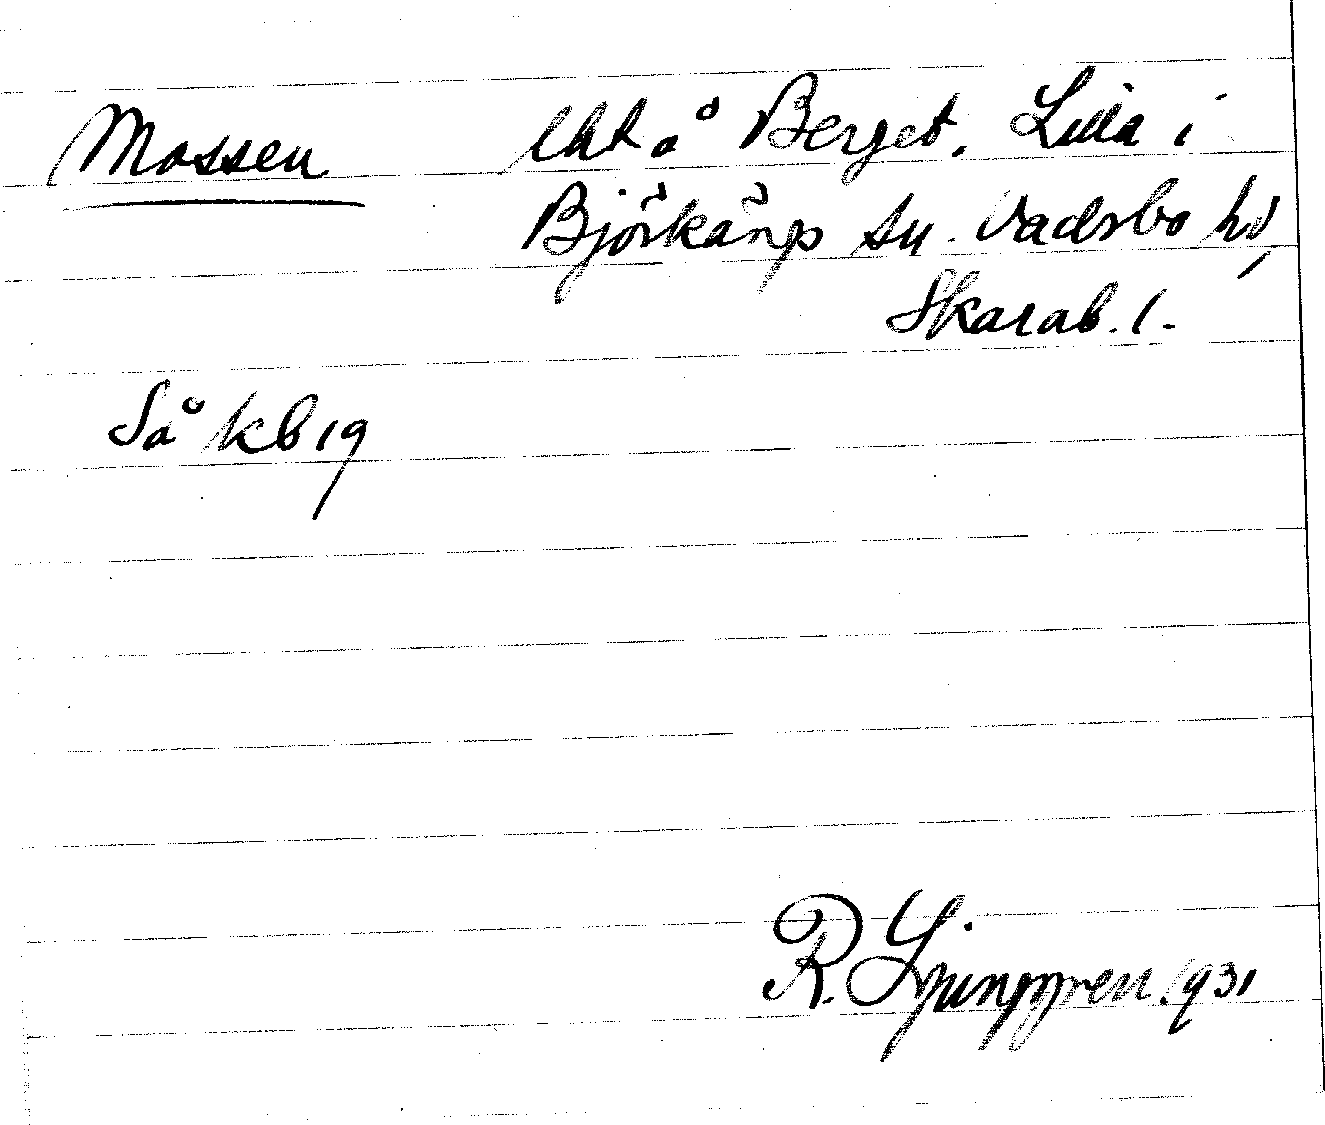 Mossen lht å Berget. Lilla i
Björkäng sn. Vadsbo hd,
Skarab. l.
Så kb 19
R. Ljunggren. 1931